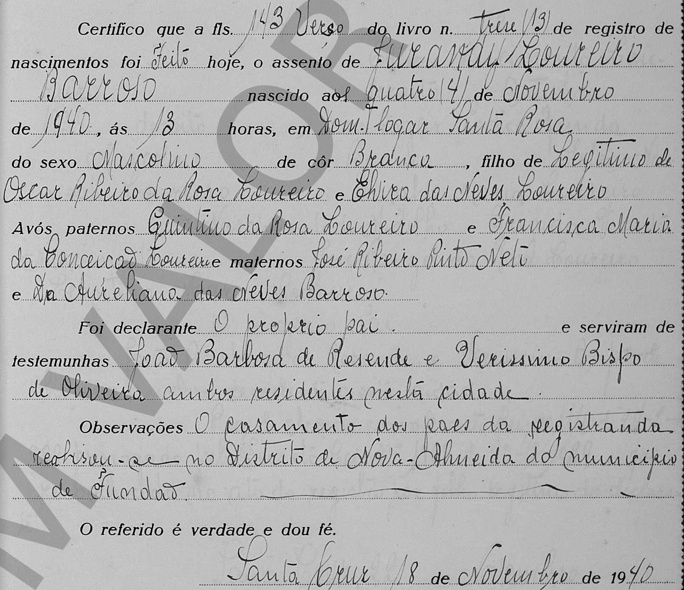 Certifico que a fls. 143 Verso do livro n. treze (13) de registro de
nascimentos foi Feito hoje, o assento de Jurandy Loureiro
Barroso nascido aos quatro (4) de Novembro
de 1940, ás 13 horas, em Dom.º logar Santa Rosa
do sexo Mascolino de côr Branca, filho de Legitimo de
Oscar Ribeiro da Rosa Loureiro e Elvira das Neves Loureiro
Avós paternos Quintino da Rosa Loureiro e Francisca Maria
da Conceicaõ Loureiro e maternos José Ribeiro Pinto Neto
e Da Aureliana das Neves Barroso.
Foi declarante O proprio pai. e serviram de
testemunhas Joaõ Barbosa de Resende e Verissimo Bispo
de Oliveira ambos residentes nesta cidade.
Observações O casamento dos paes da registranda
realisou-se no Distrito de Nova-Almeida do municipio
de Fundaõ.
O referido é verdade e dou fé.
Santa Cruz 18 de Novembro de 1940
M VALOR